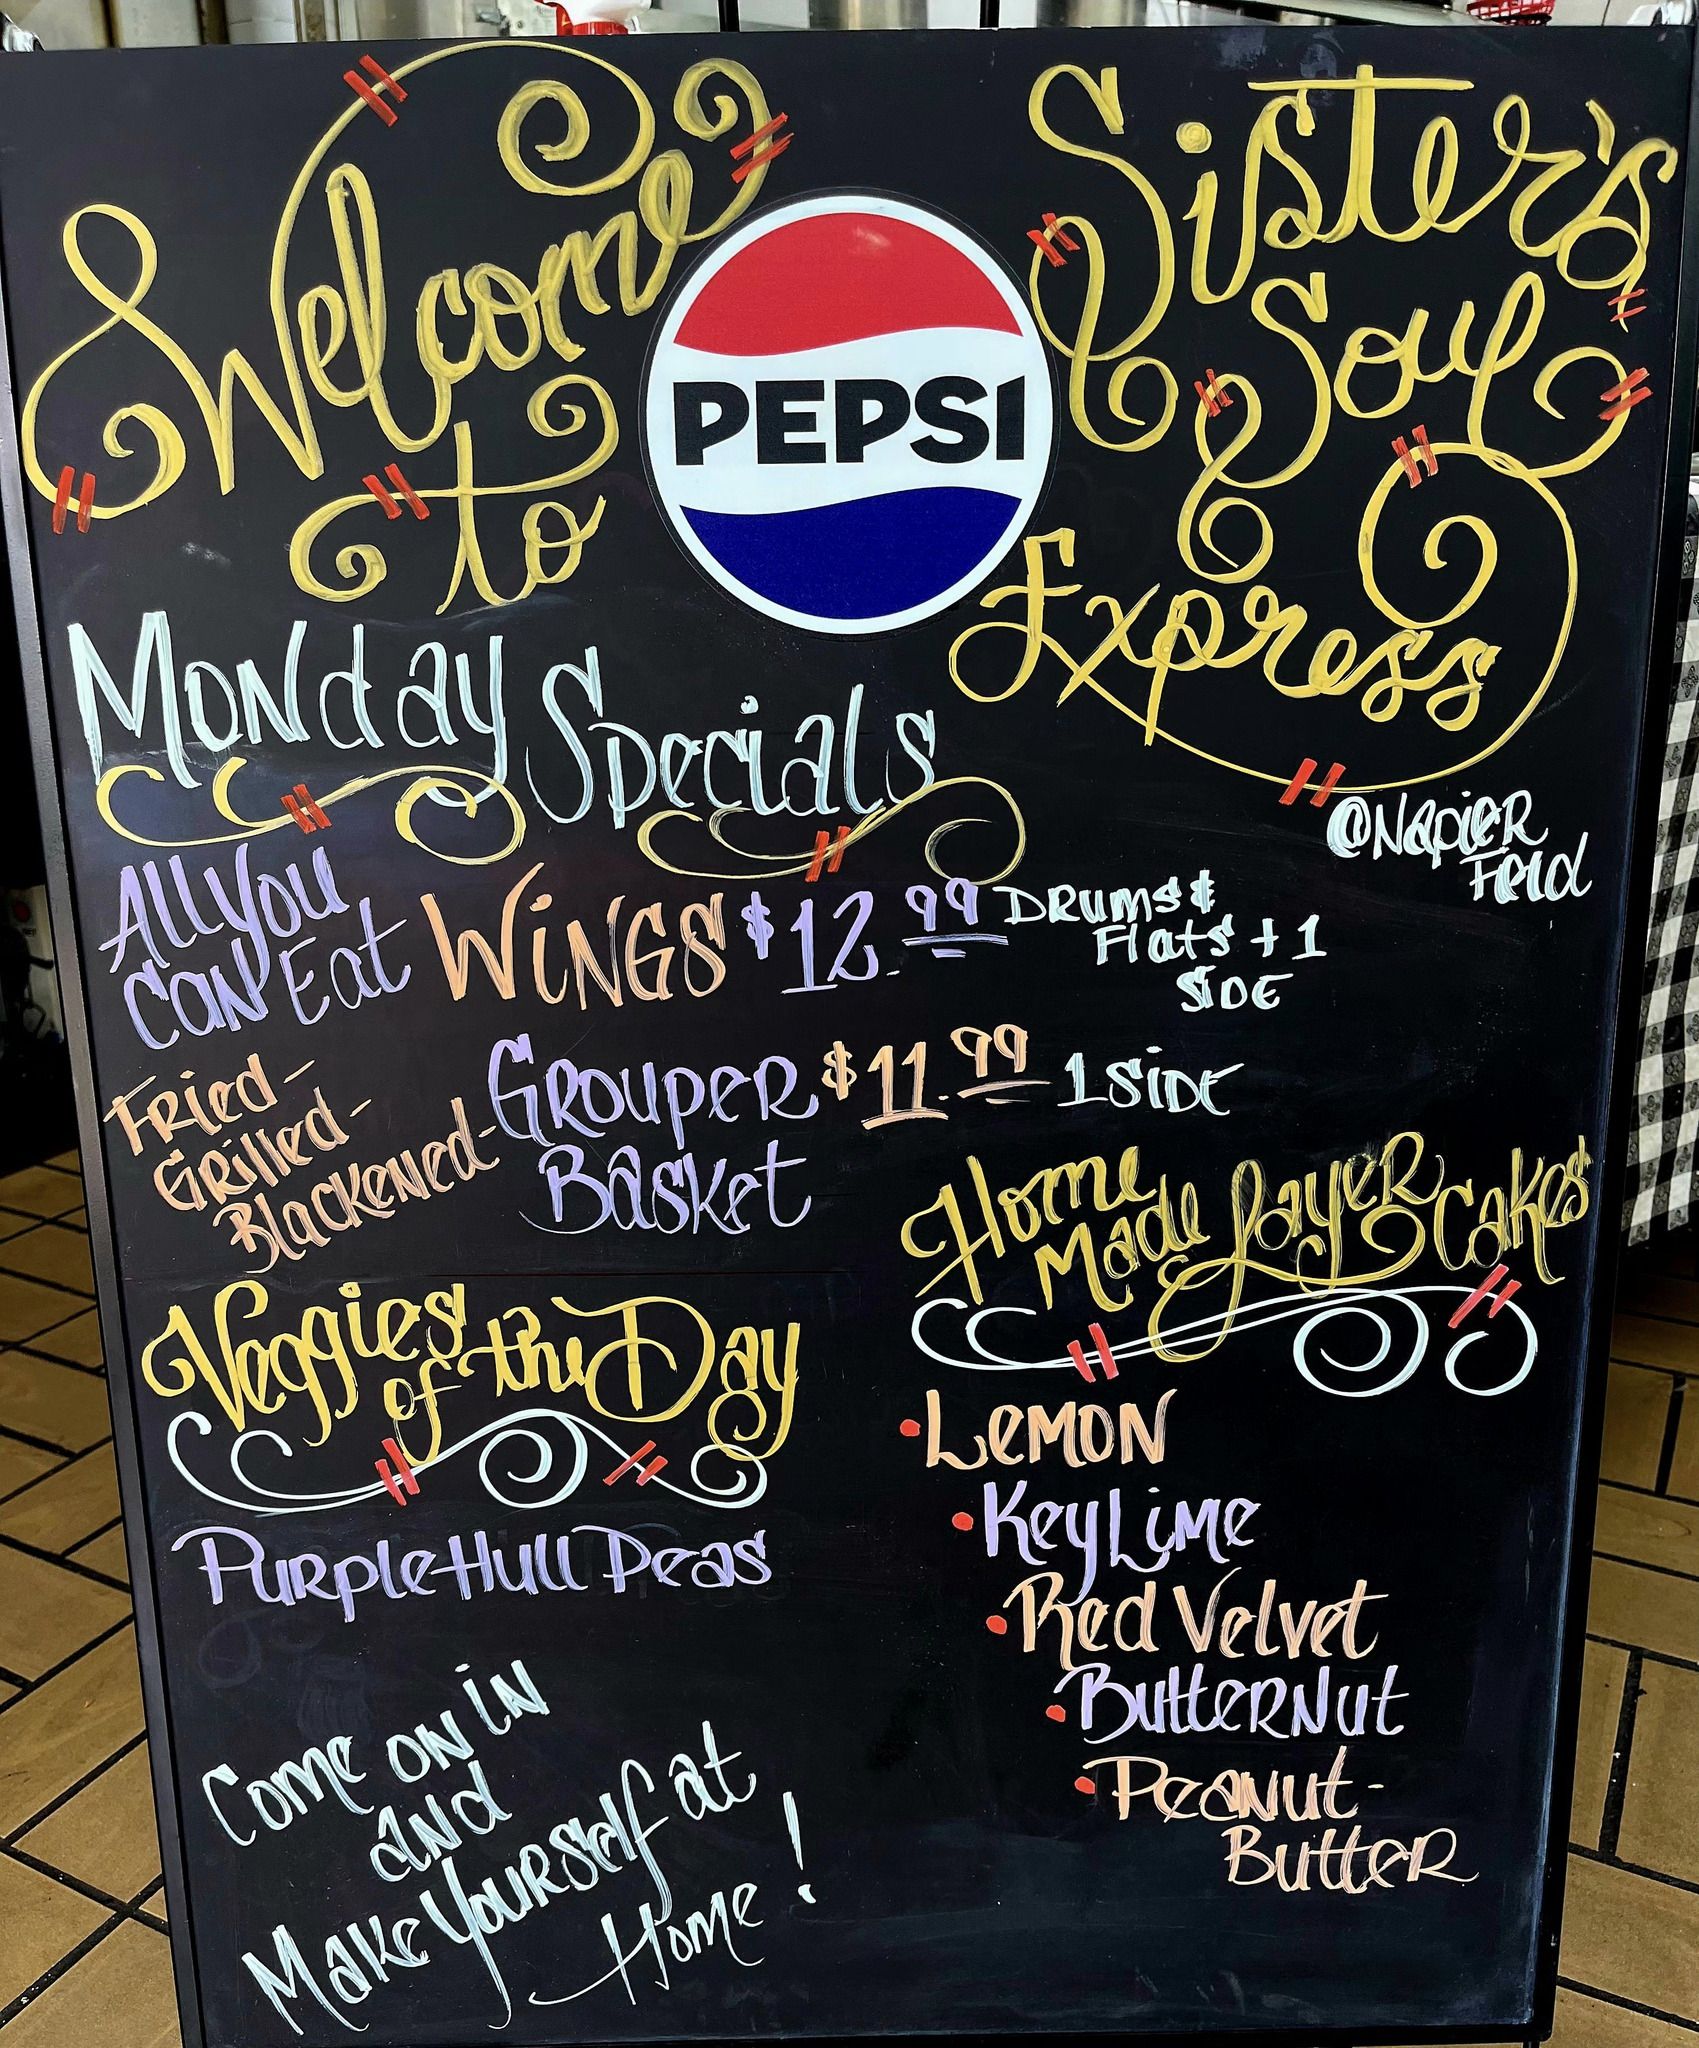 Welcome
to
PEPSI
Sister's
Soul
Express
@Napier
Feild
Monday Specials
All You
Can Eat WINGS $12.99 Drums &
Flats + 1
Side
Fried-
Grilled-
Blackened- Grouper $11.99 1 Side
Basket
Veggies
of the Day
Purple Hull Peas
Home
Made Layer Cakes
• Lemon
• Key Lime
• Red Velvet
• Butternut
• Peanut-
Butter
Come on in
and
Make Yourself at
Home!